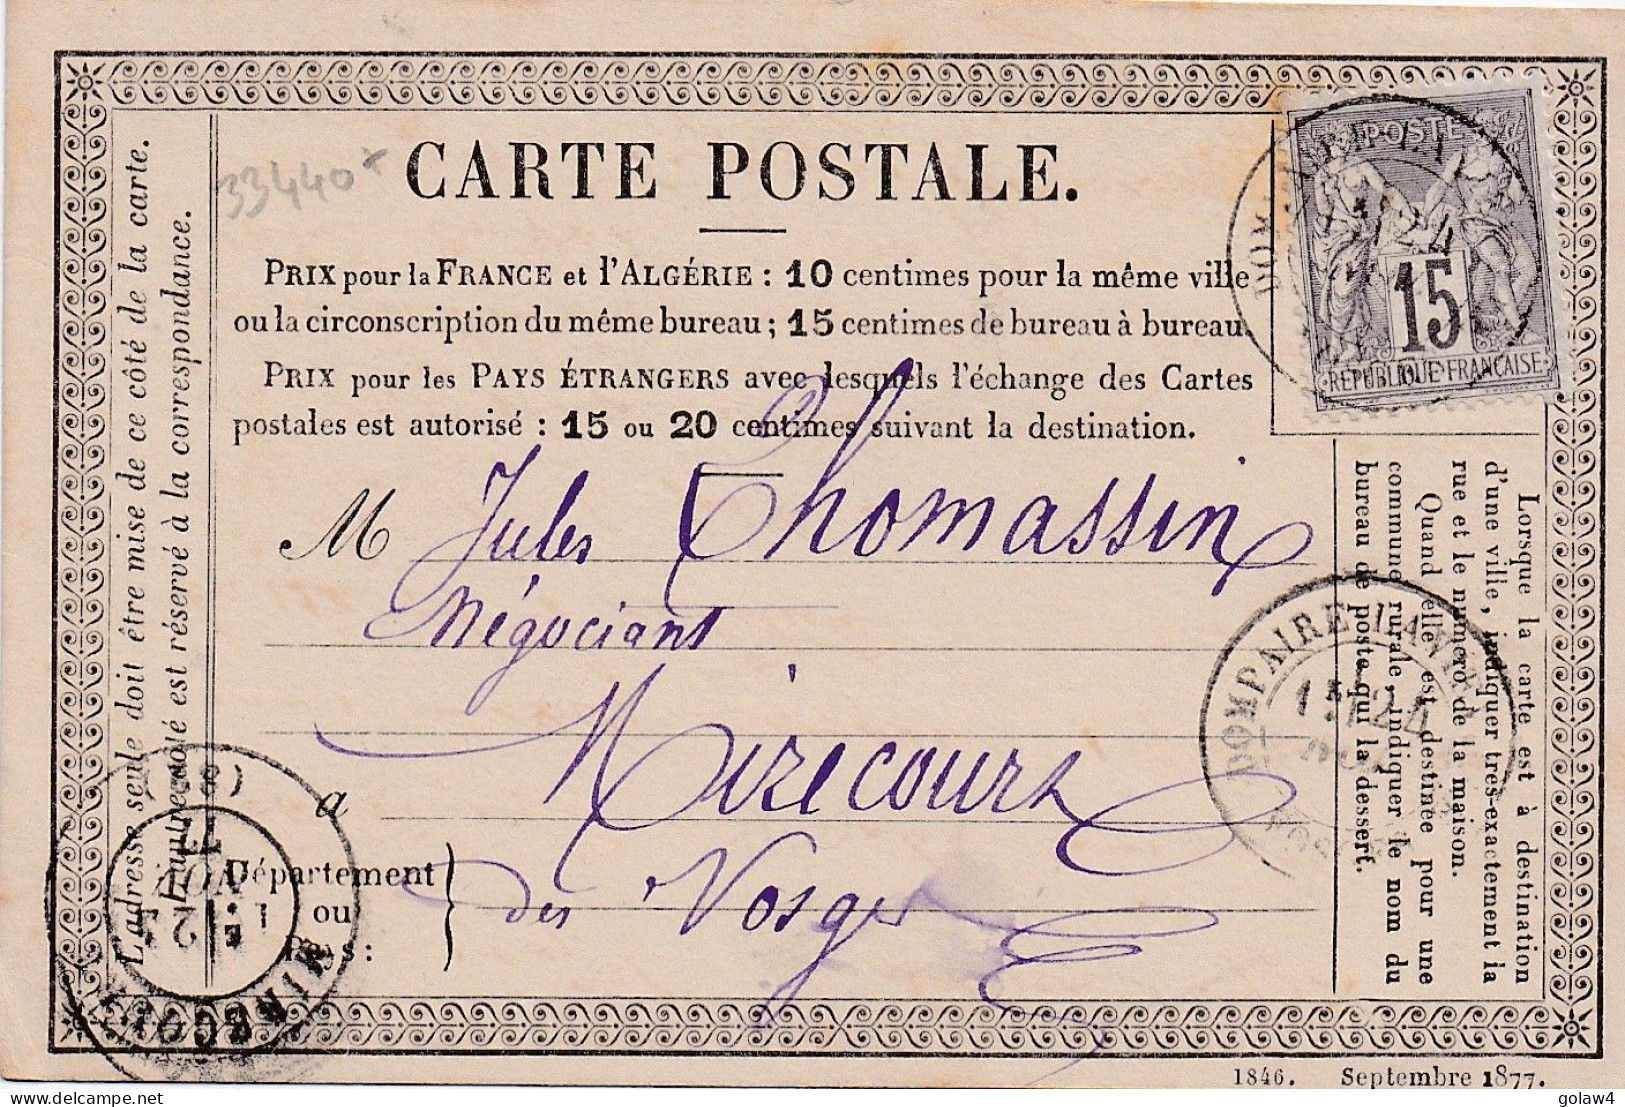 33440*
CARTE POSTALE.
PRIX pour la FRANCE et l'ALGÉRIE : 10 centimes pour la même ville
ou la circonscription du même bureau ; 15 centimes de bureau à bureau.
PRIX pour les PAYS ÉTRANGERS avec lesquels l'échange des Cartes
postales est autorisé : 15 ou 20 centimes suivant la destination.
M Jules Thomassin
Négociant
a Mirecourt
Département
ou
Pays :
des Vosges
L'adresse seule doit être mise de ce côté de la carte.
L'autre côté est réservé à la correspondance.
POSTE
15
REPUBLIQUE FRANÇAISE
Lorsque la carte est à destination
d'une ville, indiquer très-exactement la
rue et le numéro de la maison.
Quand elle est destinée pour une
commune rurale, indiquer le nom du
bureau de poste qui la dessert.
DOMPAIRE
NOV
MIRECOURT
(88)
1846. Septembre 1877.
delcampe.net
golaw4